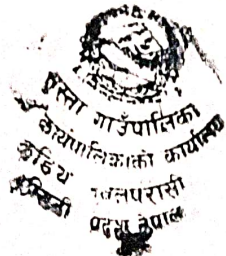 सुस्ता गाउँपालिका
कार्यपालिकाको कार्यालय
कुडिया
नवलपरासी
प्रदेश नेपाल